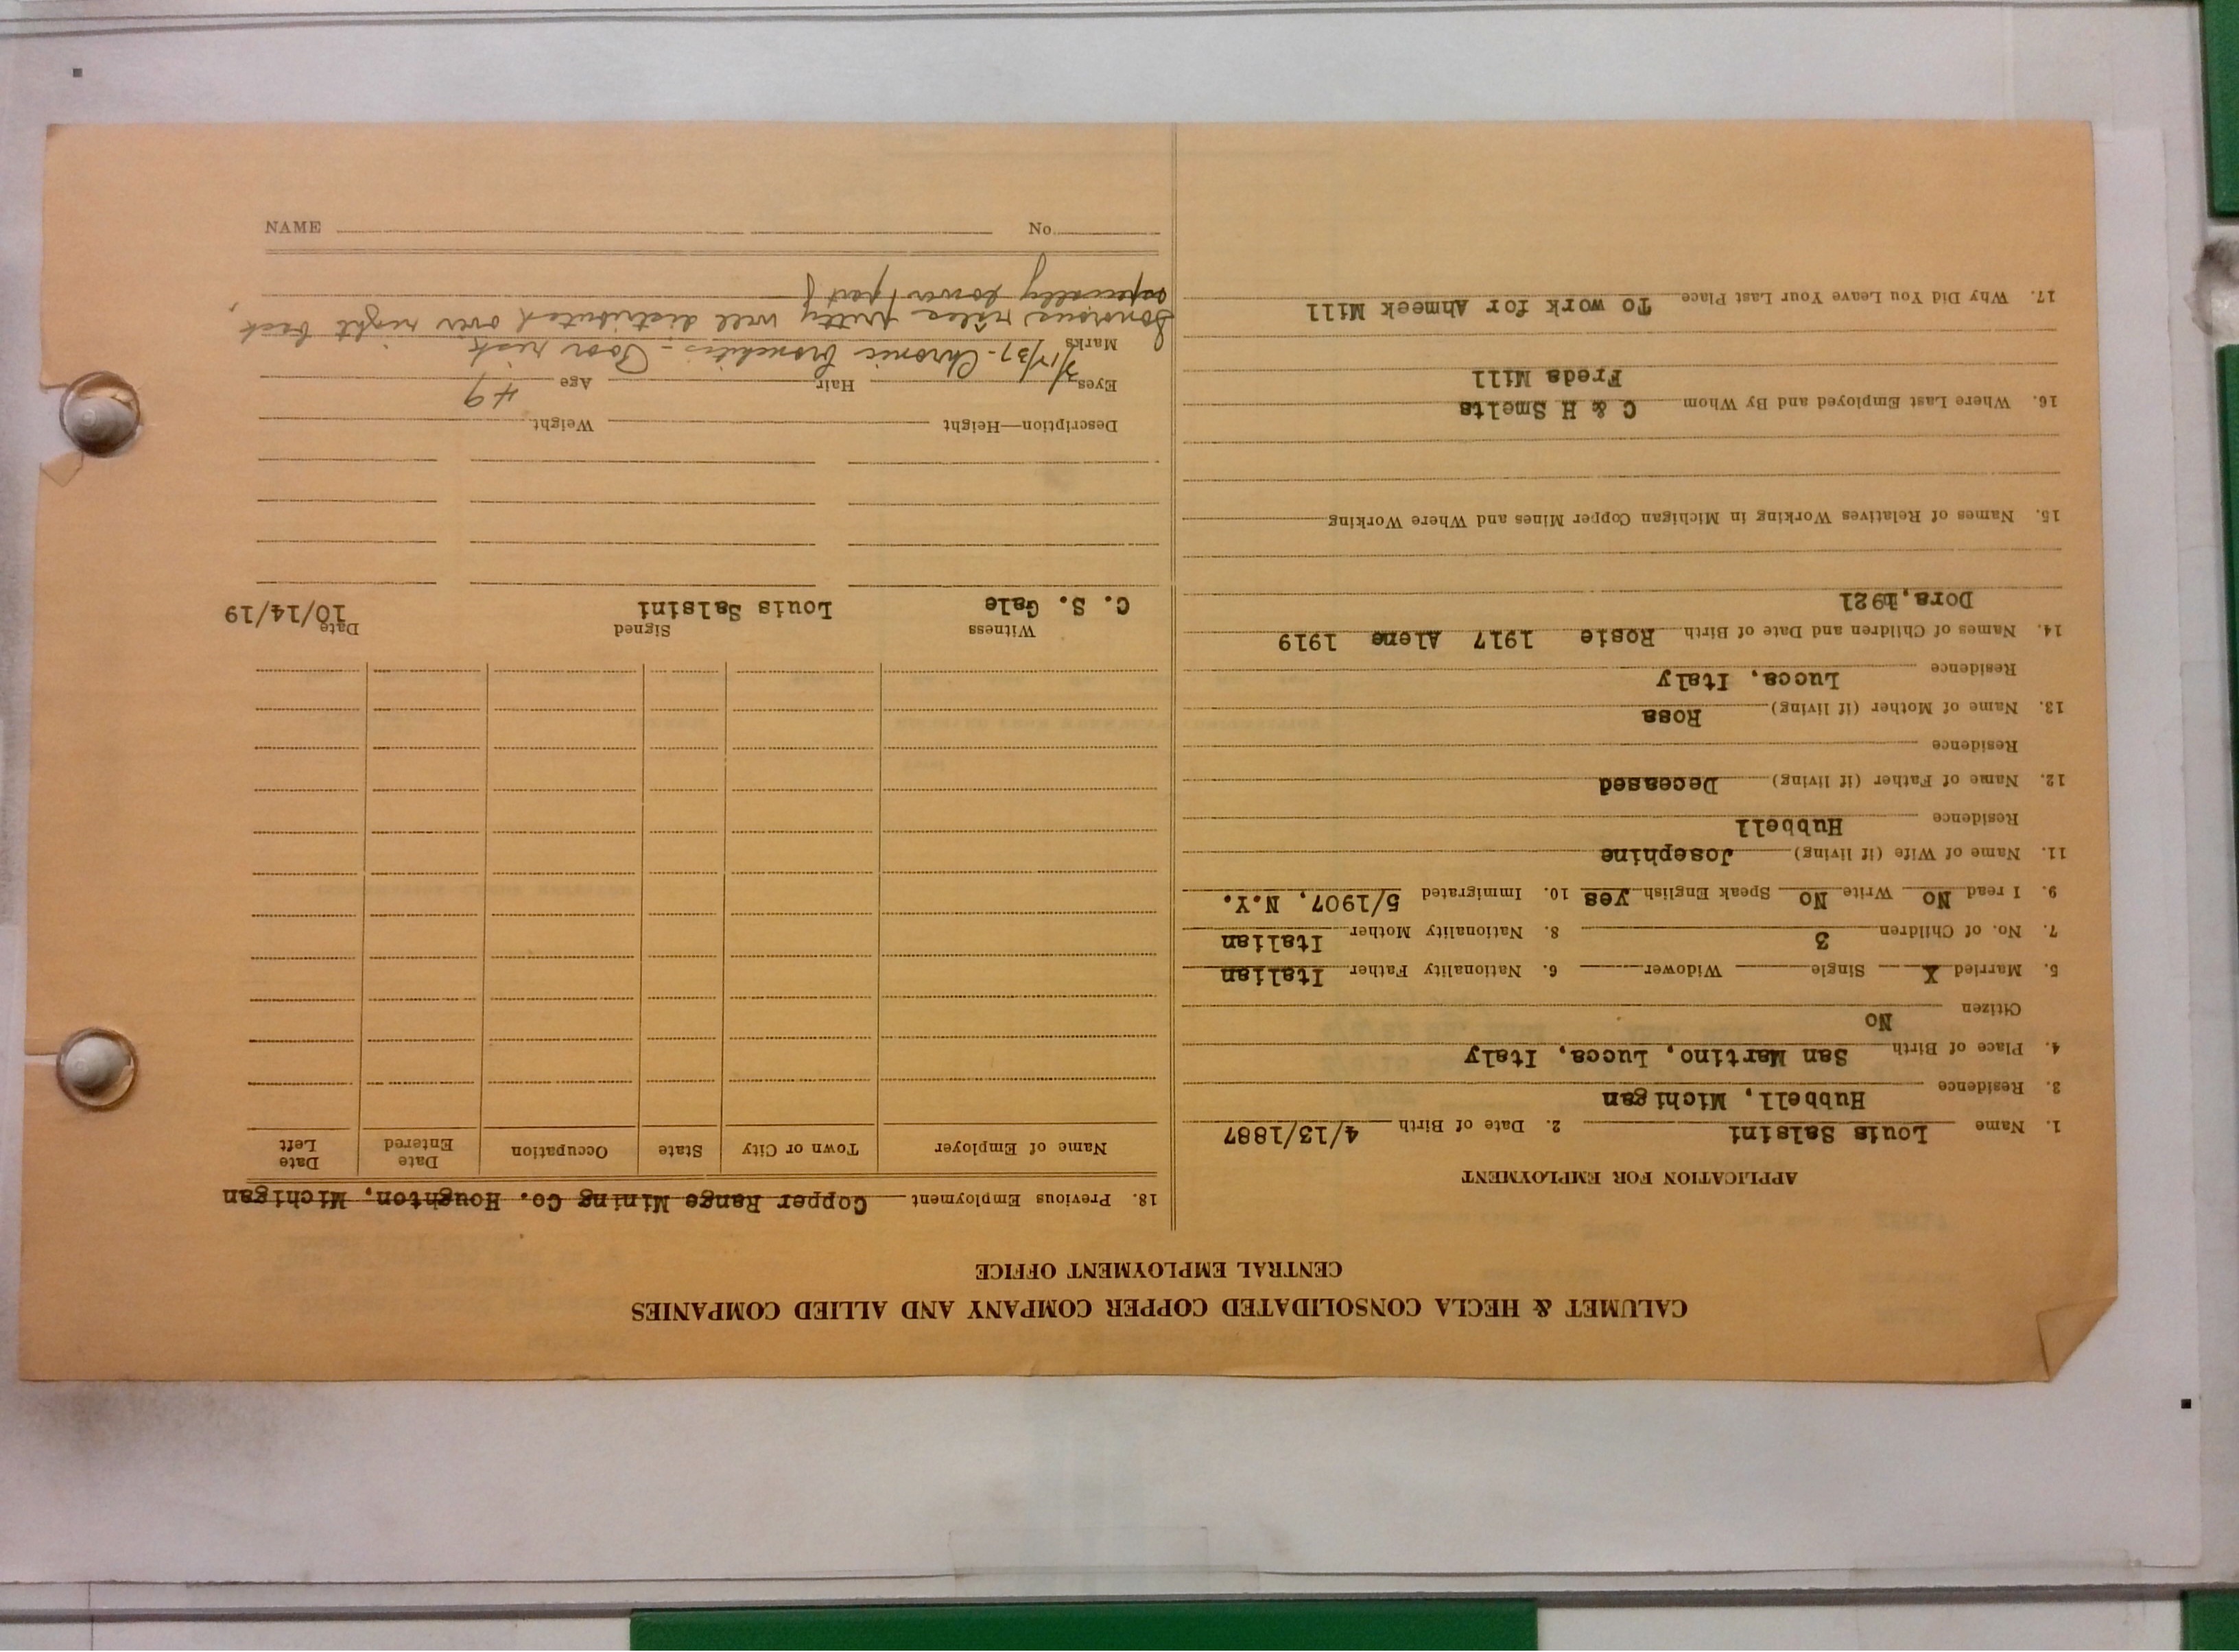 CALUMET & HECLA CONSOLIDATED COPPER COMPANY AND ALLIED COMPANIES
CENTRAL EMPLOYMENT OFFICE
APPLICATION FOR EMPLOYMENT
1. Name Louis Salsini 2. Date of Birth 4/13/1887
3. Residence Hubbell, Michigan
4. Place of Birth San Martino, Lucca, Italy
Citizen No
5. Married X Single Widower 6. Nationality Father Italian
7. No. of Children 3 8. Nationality Mother Italian
9. I read No Write No Speak English yes 10. Immigrated 5/1907, N.Y.
11. Name of Wife (if living) Josephine
Residence Hubbell
12. Name of Father (if living) Deceased
Residence
13. Name of Mother (if living) Rosa
Residence Lucca, Italy
14. Names of Children and Date of Birth Rosie 1917 Alene 1919
Dora, 1921
15. Names of Relatives Working in Michigan Copper Mines and Where Working
16. Where Last Employed and By Whom C & H Smelts
Freda Mill
17. Why Did You Leave Your Last Place To work for Ahmeek Mill
18. Previous Employment Copper Range Mining Co. Houghton, Michigan
Name of Employer Town or City State Occupation Date Entered Date Left
Witness Signed Date
C. S. Gale Louis Salsini 10/14/19
Description—Height Weight
Eyes Hair Age 49
Marks 3/17/37 - Chronic bronchitis - Poor risk
Sonorous râles pretty well distributed over right back,
especially lower part
NAME No.